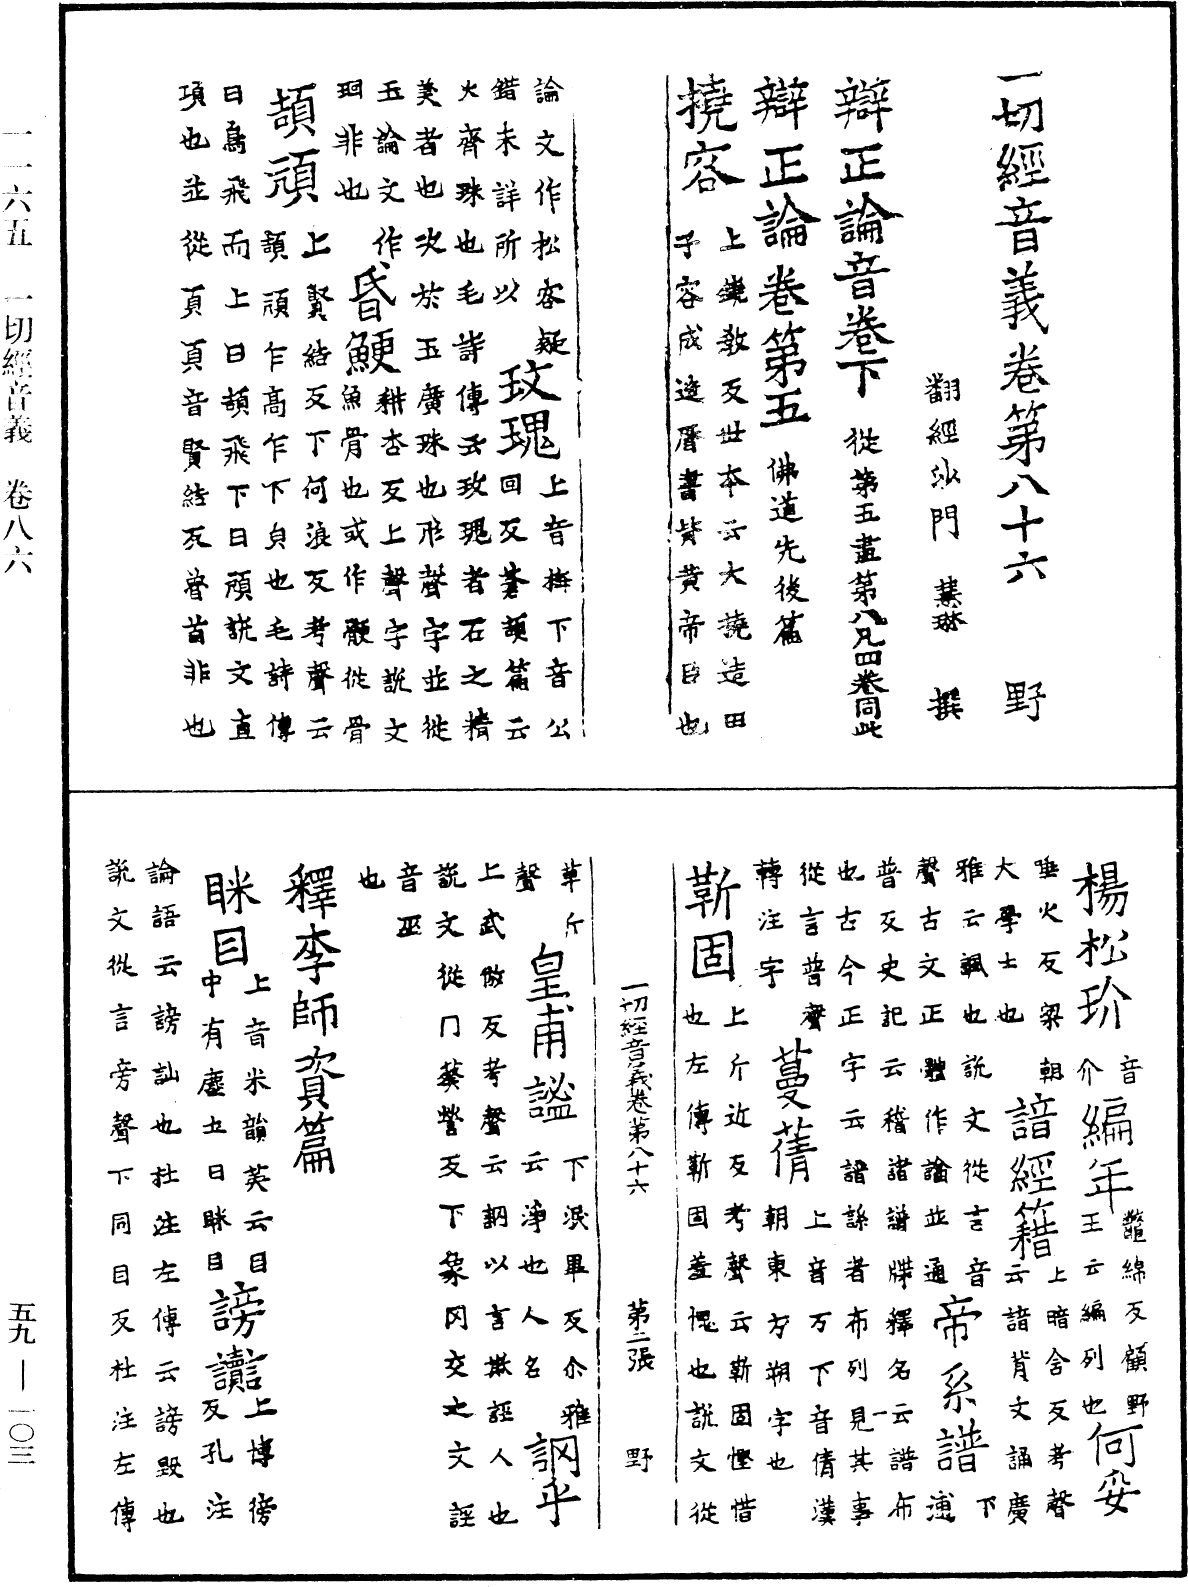 一切經音義卷第八十六 野
翻經沙門 慧琳 撰
辯正論音卷下 從第五盡第八凡四卷同此
辯正論卷第五 佛道先後篇
撓容 上鐃教反世本云大撓造甲
子容成造曆書皆黃帝臣也
論文作松容疑
錯未詳所以 玫瑰 上音梅下音公
回反蒼頡篇云
火齊珠也毛詩傳云玫瑰者石之精
美者也次於玉廣珠也形聲字並從
玉論文作
珇非也 昏鯁 耕杏反上聲字說文
魚骨也或作骾從骨
頡頏 上賢結反下何浪反考聲云
頡頏乍高乍下皃也毛詩傳
曰鳥飛而上曰頡飛下曰頏說文直
項也並從頁頁音賢結反𩠐首非也
楊松玠 音介 編年 鼈綿反顧野
王云編列也 何妥
唾火反梁朝
大學士也 諳經籍 上暗含反考聲
云諳背文誦廣
雅云諷也說文從言音
聲古文正體作諳並通 帝系譜 下逋
普反史記云稽諸譜牒釋名云譜布
也古今正字云譜謀者布列見其事
從言普聲
轉注字 蔓蒨 上音万下音倩漢
朝東方朔字也
靳固 上斤近反考聲云靳固慳惜
也左傳靳固羞愧也說文從
一切經音義卷第八十六 第二張 野
革斤
聲 皇甫謐 下泯畢反尒雅
云淨也人名 誷乎
上武倣反考聲云誷以言欺誣人也
說文從冂蔡營反下象冈交之文誣
音巫
也
釋李師資篇
眯目 上音米韻英云目
中有塵土曰眯目 謗讟 上博徬
反孔注
論語云謗訕也杜注左傳云謗毀也
說文從言旁聲下同目反杜注左傳
一一六五 一切經音義 卷八六
五九—一〇三